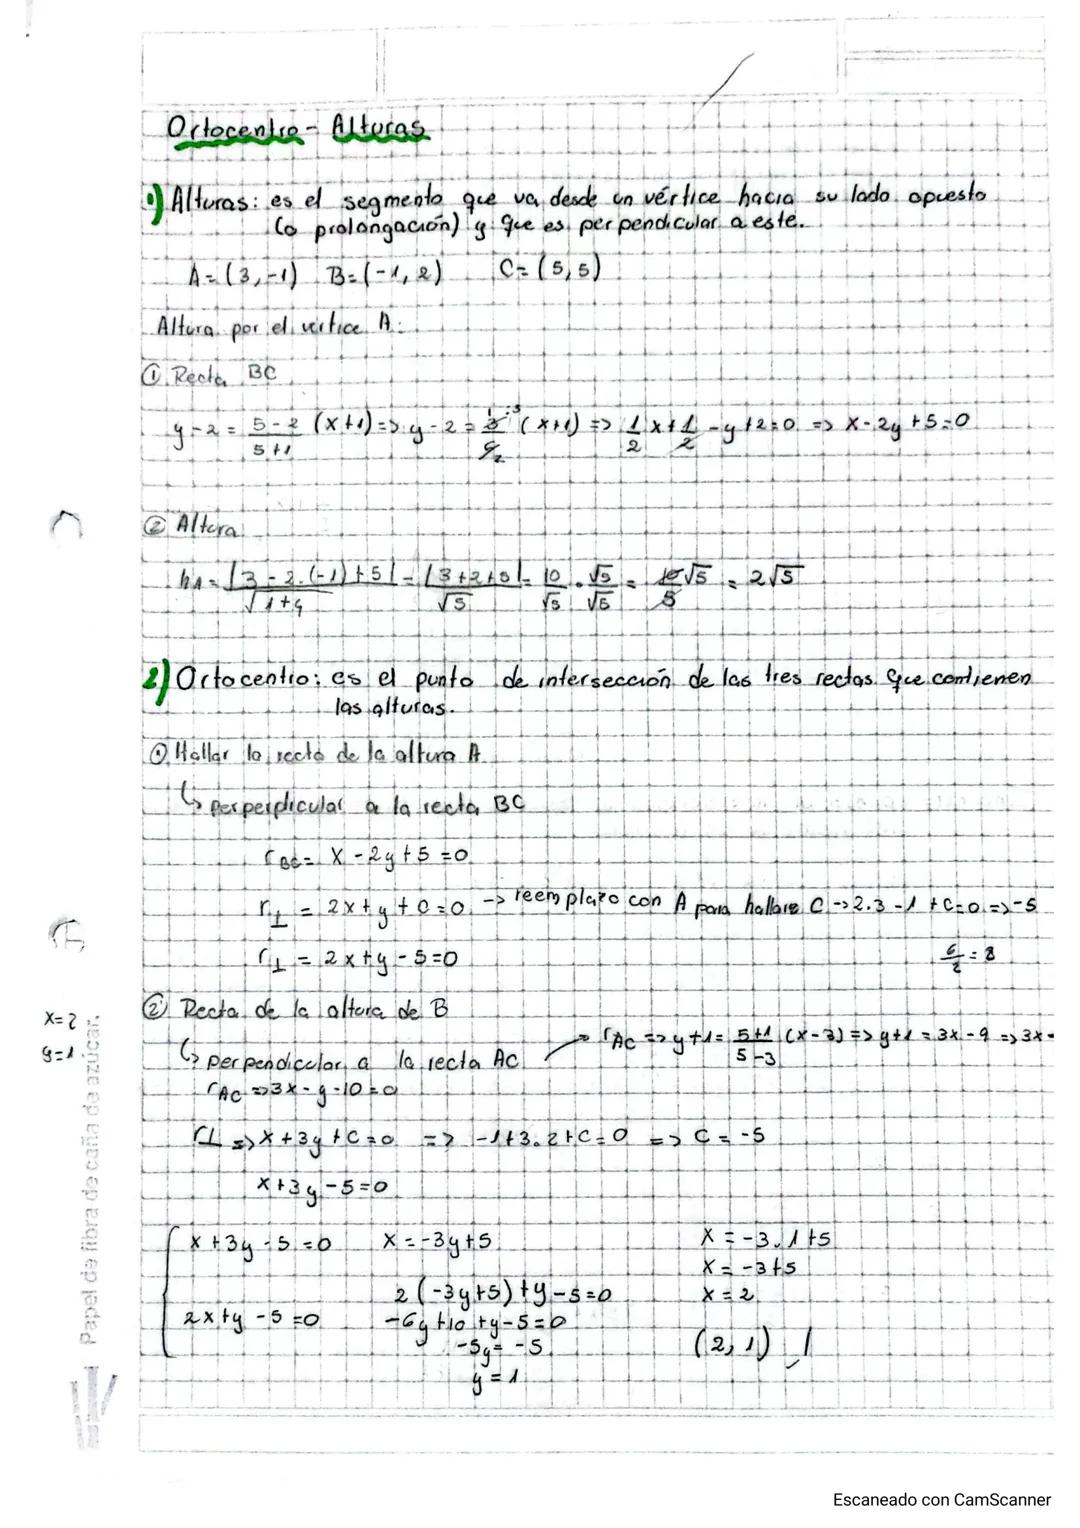 Ortocentro - Alturas
1) Alturas: es el segmento que va desde un vértice hacia su lado opuesto
(o prolongación) y que es perpendicular a este.
A=(3,-1) B=(-1,2) C=(5,5)
Altura por el vertice A:
① Recta BC
y-2 = 5-2/5+1 (x+1) => y-2 = 3/6 (x+1) => 1/2 x + 1/2 - y+2=0 => x-2y+5=0
② Altura
hA = |3-2.(-1)+5|/√1+4 = |3+2+5|/√5 = 10/√5 . √5/√5 = 10√5/5 = 2√5
2) Ortocentro: es el punto de intersección de las tres rectas que contienen
las alturas.
① Hallar la recta de la altura A
↳ perperdicular a la recta BC
rBC= x-2y+5=0
r⊥ = 2x+y+C=0 -> reemplazo con A para hallare C -> 2.3-1+C=0 => -5
r⊥ = 2x+y-5=0
6/2 = 8
② Recta de la altura de B
x=2
y=1
rAC => y+1= 5+1/5-3 (x-3) => y+1 = 3x-9 => 3x-
↳ perpendicular a la recta AC
rAC => 3x-y-10=0
r⊥ => x+3y+C=0 => -1+3.2+C=0 => C=-5
x+3y-5=0
x+3y-5=0 x=-3y+5 x=-3.1+5
x=-3+5
2(-3y+5)+y-5=0 x=2
2x+y-5=0 -6y+10+y-5=0
-5y=-5 (2,1)
y=1
Papel de fibra de caña de azúcar.
Escaneado con CamScanner